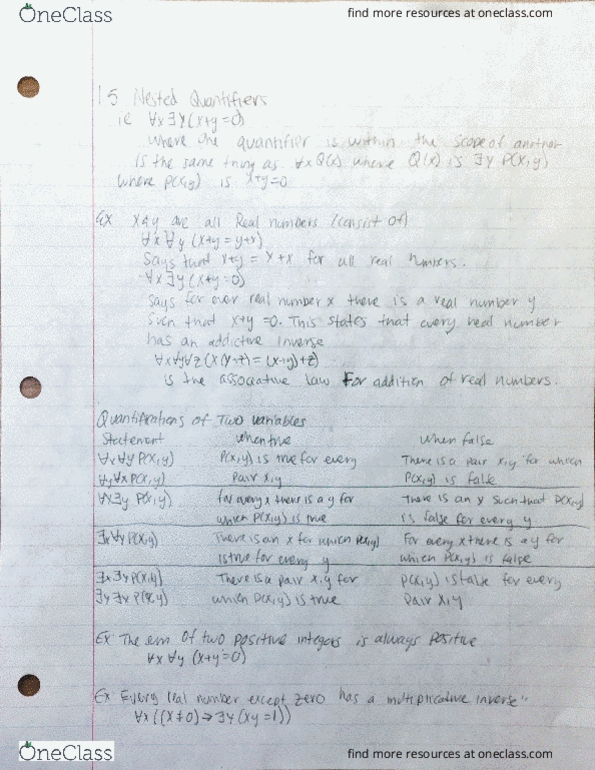 OneClass
find more resources at oneclass.com
1.5 Nested Quantifiers
ie ∀x∃y(x+y=0)
where one quantifier is within the scope of another
is the same thing as ∀xQ(x) where Q(x) is ∃y P(x,y)
where P(x,y) is x+y=0
Ex x&y are all Real numbers (consist of)
∀x∀y (x+y = y+x)
Says that x+y = y+x for all real numbers.
∀x∃y(x+y=0)
Says for ever real number x there is a real number y
Such that x+y=0. This states that every real number
has an addictive inverse
∀x∀y∀z(x(y+z)=(x+y)+z)
is the associative law for addition of real numbers.
Quantifications of Two variables
Statement when true When false
∀x∀y P(x,y) P(x,y) is true for every There is a pair x,y for which
∀y∀x P(x,y) Pair x,y P(x,y) is false
∀x∃y P(x,y) for every x there is a y for There is an x such that P(x,y)
which P(x,y) is true is false for every y
∃x∀y P(x,y) There is an x for which P(x,y) For every x there is a y for
is true for every y which P(x,y) is false
∃x∃y P(x,y) There is a pair x,y for P(x,y) is false for every
∃y∃x P(x,y) which P(x,y) is true Pair x,y
Ex The sum of two positive integers is always positive
∀x∀y (x+y=0)
Ex Every real number except zero has a multiplicative inverse"
∀x((x≠0)→∃y(xy=1))
OneClass
find more resources at oneclass.com